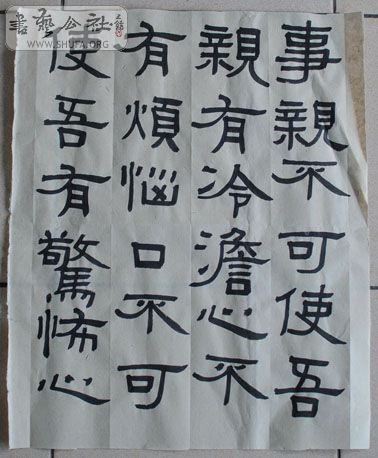 書藝公社
WWW.SHUFA.ORG
事親不可使吾
親有冷澹心不
有煩惱口不可
使吾有驚怖心